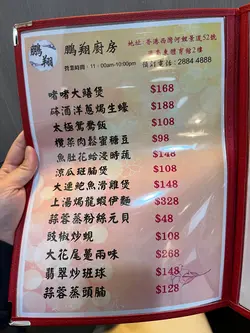 鵬翔
鵬翔廚房
營業時間：11：00am-10:00pm
地址：筲箕灣
訂座電話：2884 4888
啫啫大鱔煲 $168
砵酒洋蔥焗生蠔 $188
太極鴛鴦飯 $108
欖菜肉鬆蜜糖豆 $98
魚肚花蛤浸時蔬 $148
涼瓜斑腩煲 $108
大連鮑魚滑雞煲 $148
上湯焗龍蝦伊麵 $328
蒜蓉蒸粉絲元貝 $48
豉椒炒蜆 $108
大花尾躉兩味 $268
翡翠炒斑球 $148
蒜蓉蒸頭腩 $128